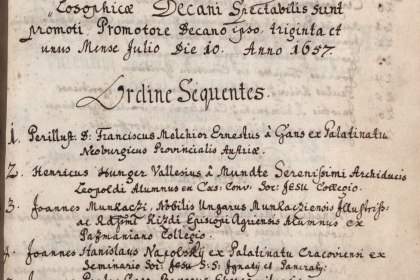 losophicæ Decani Spectabilis sunt
promoti Promotore Decano ipso triginta et
unus Mense Julio Die 10. Anno 1657.
Ordine Sequentes.
1. Perillust: D: Franciscus Melchior Ernestus â Gans ex Palatinatu
Neoburgicus Provincialis Austriæ.
2. Henricus Hunger Vallesius â Mundte Serenissimi Archiducis
Leopoldi Alumnus en Cæs: Conv: Soc: Jesu Collegio.
3. Joannes Munkaczi, Nobilis Ungarus Munkacziensis Illustriss:
ac Rdssmi Kizdi Episcopi Agriensis Alumnus ex
Pazmaniano Collegio.
4. Joannes Stanislaus Nagolsky ex Palatinatu Cracoviensi ex
Seminario Soc: Jesu S.S: Ignatÿ et Pancratÿ: